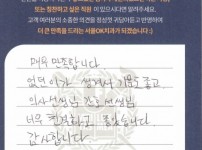 또는 칭찬하고 싶은 직원이 있으시다면 알려주세요.
고객 여러분의 소중한 의견을 정성껏 귀담아듣고 반영하여
더 큰 만족을 드리는 서울OK치과가 되겠습니다 :)
매우 만족합니다
없던 이가 생겨서 기분도 좋고
의사선생님, 간호선생님
너무 친절하고 좋았습니다
감사합니다